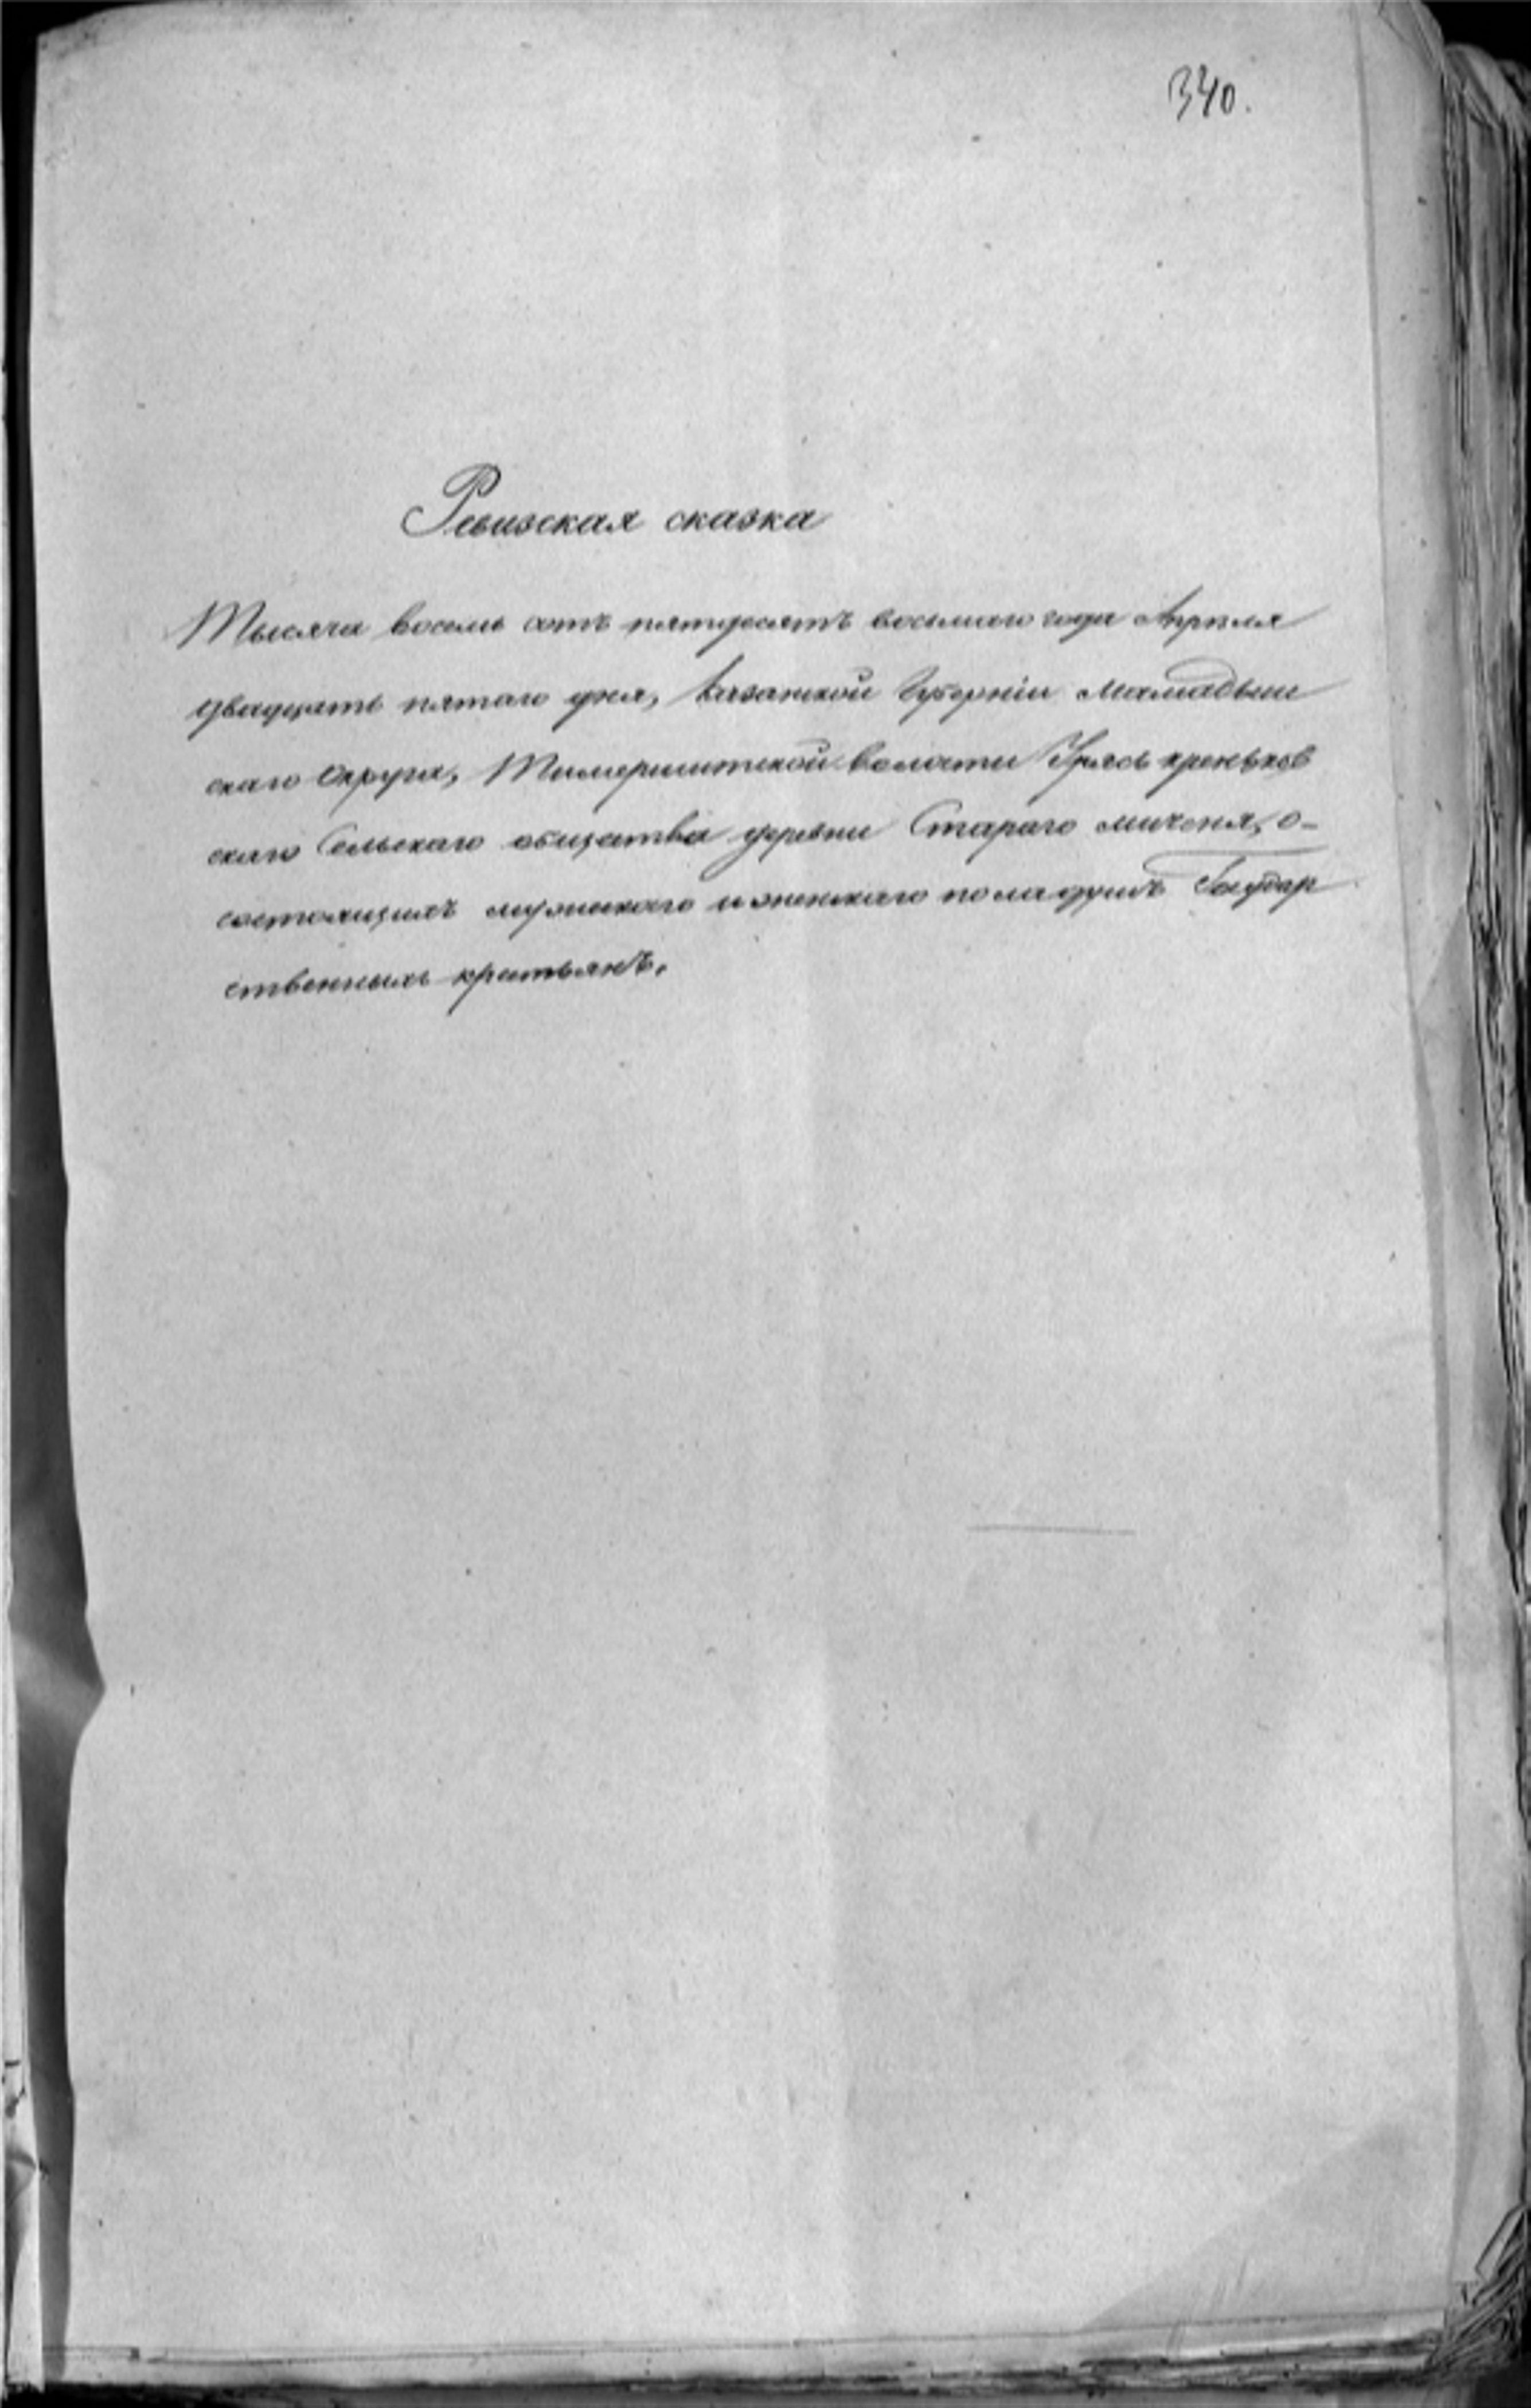 340.
Ревизская сказка
Тысяча восемь сотъ пятидесятъ восьмаго года Апрѣля
двадцать пятаго дня, Казанской Губерніи Мамадыш
скаго Округа, волости
скаго Сельскаго общества деревни Стараго о-
состоящихъ мужескаго и женскаго пола душъ Государ
ственныхъ крестьянъ.